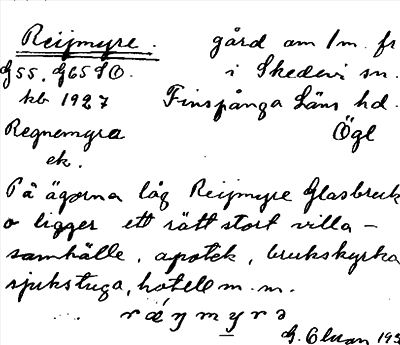 Reijmyre. gård om 1 m. fr
G 55. G65 SO. i Skedevi sn.
kb 1927 Finspånga Läns hd.
Regnemyra Ögl
ek.
På ägorna låg Reijmyre Glasbruk
o ligger ett rätt stort villa-
samhälle, apotek, brukskyrka
sjukstuga, hotell m.m.
G. 193